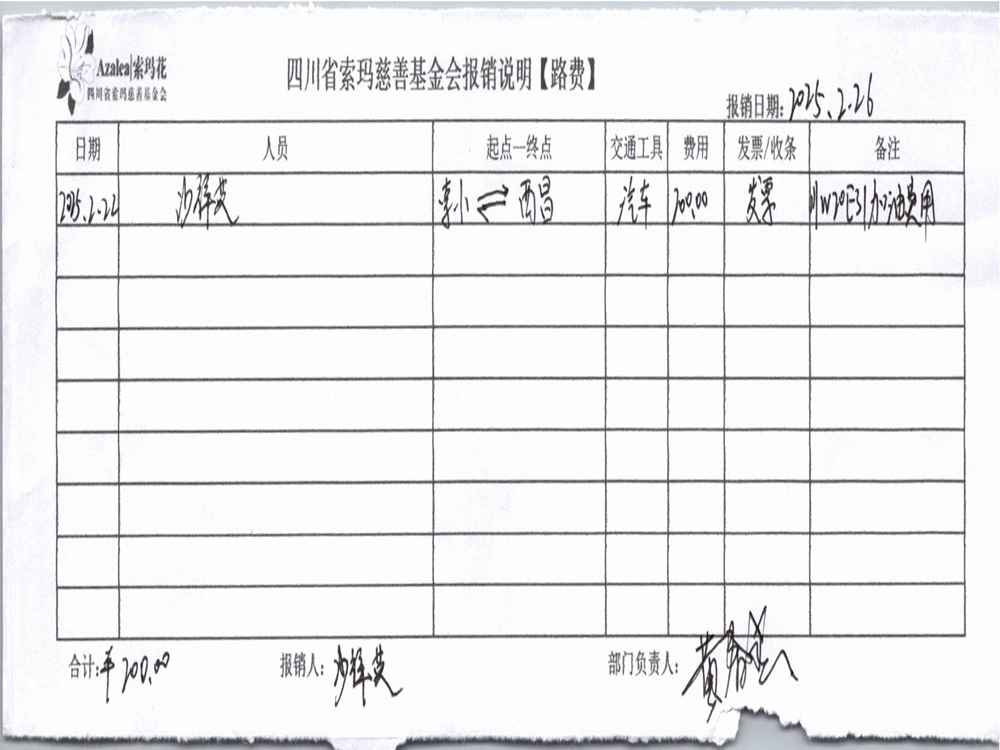 Azalea|索玛花
四川省索玛慈善基金会
四川省索玛慈善基金会报销说明【路费】
报销日期:2025.2.26
日期 人员 起点—终点 交通工具 费用 发票/收条 备注
2025.2.22 沙祥英 ⇌ 西昌 汽车 200.00 发票 加油费用
合计:¥200.00 报销人:沙祥英 部门负责人:黄